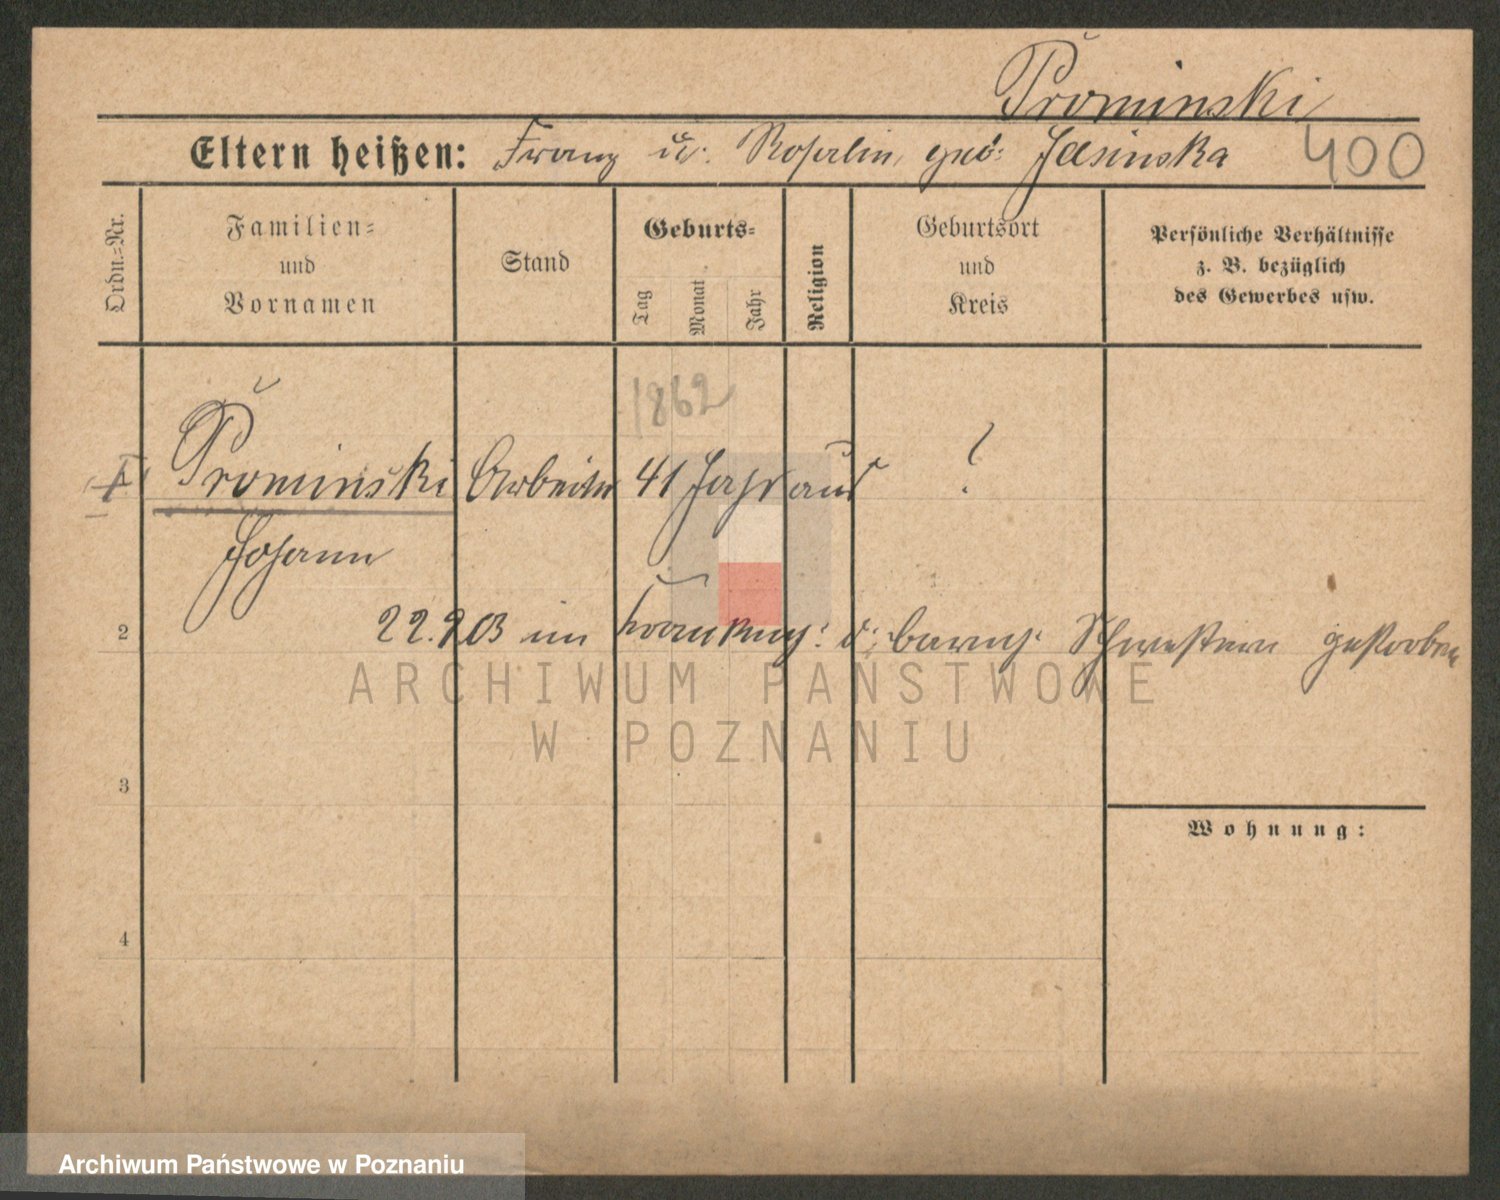 Prominski
Eltern heißen: Franz u. Rosalin, geb: Jasinska 400
Ordn.=Nr.
Familien=
und
Vornamen
Stand
Geburts=
Tag
Monat
Jahr
Religion
Geburtsort
und
Kreis
Persönliche Verhältnisse
z. B. bezüglich
des Gewerbes usw.
1862
Prominski Arbeiter 41 Jahr aus ?
Johann
2 22.9.03 im Krankenh: d: barmh: Schwestern gestorben
ARCHIWUM PAŃSTWOWE
W POZNANIU
3
Wohnung:
4
Archiwum Państwowe w Poznaniu